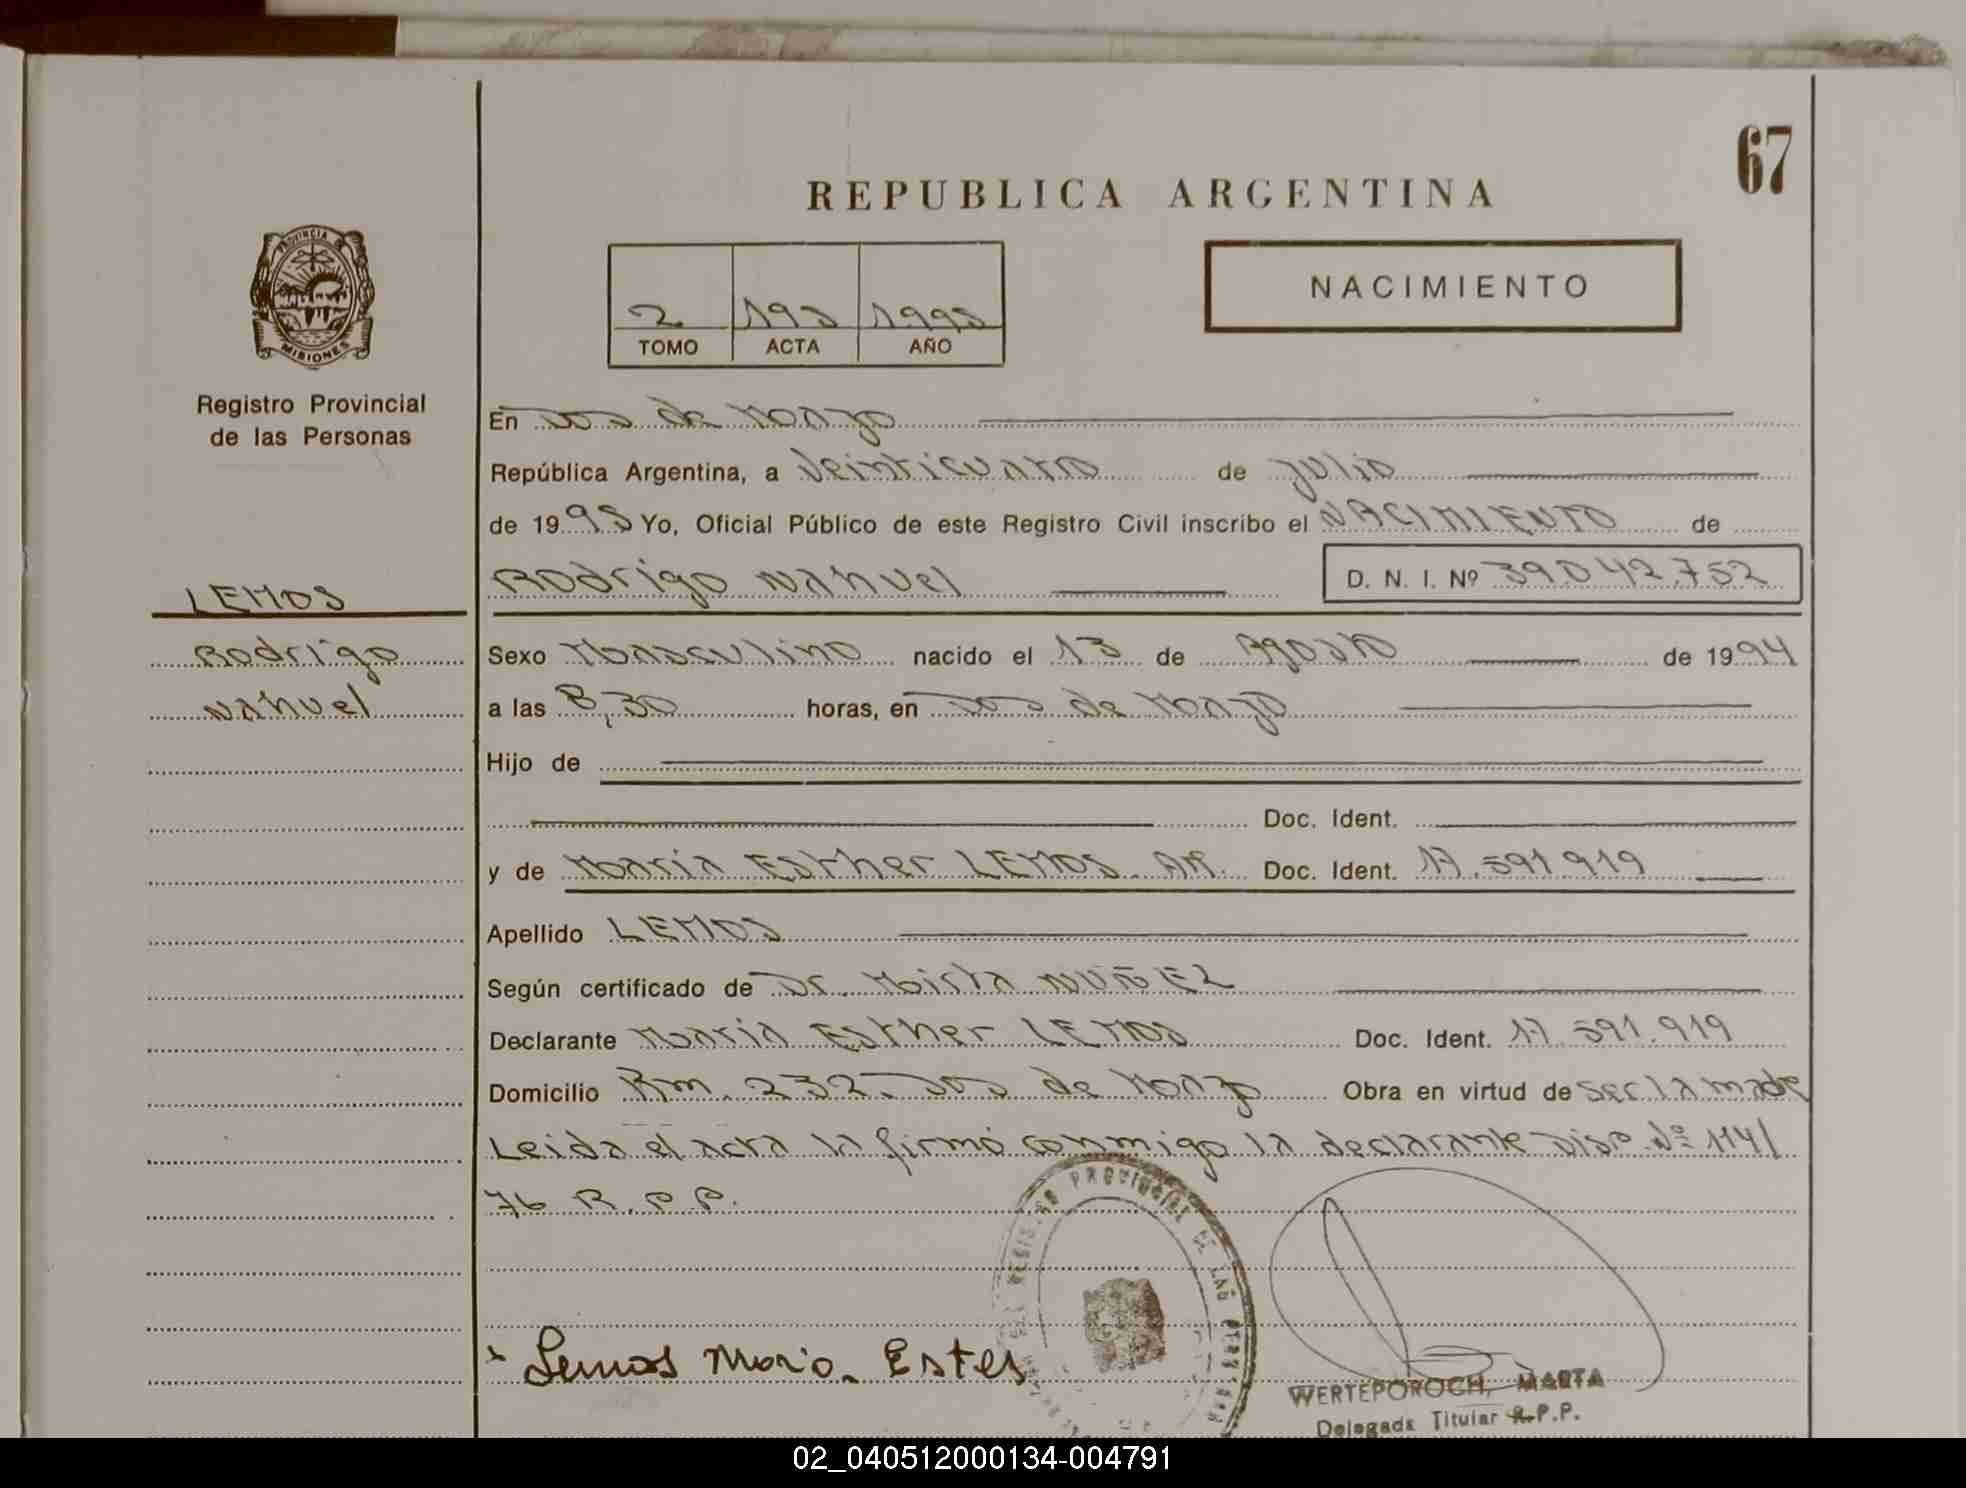 67
REPUBLICA ARGENTINA
PROVINCIA DE
MISIONES
Registro Provincial
de las Personas
NACIMIENTO
2 195 1995
TOMO ACTA AÑO
En Dos de Mayo
República Argentina, a Veinticuatro de Julio
de 1995 Yo, Oficial Público de este Registro Civil inscribo el NACIMIENTO de
LEMOS
Rodrigo Nahuel D. N. I. Nº 39.042.752
Rodrigo
Nahuel
Sexo Masculino nacido el 13 de Agosto de 1994
a las 8,30 horas, en Dos de Mayo
Hijo de
Doc. Ident.
y de Maria Esther LEMOS. AR. Doc. Ident. 17.591.919
Apellido LEMOS
Según certificado de Dr. Mirta NUÑEZ
Declarante Maria Esther LEMOS Doc. Ident. 17.591.919
Domicilio Km. 232. Dos de Mayo Obra en virtud de ser la madre
Leida el acta la firmó conmigo la declarante Disp. Nº 114/
76 R.P.P.
REGISTRO PROVINCIAL DE LAS PERSONAS
x Lemos Maria. Ester
WERTEPOROCH, MARTA
Delegada Titular R.P.P.
02_040512000134-004791